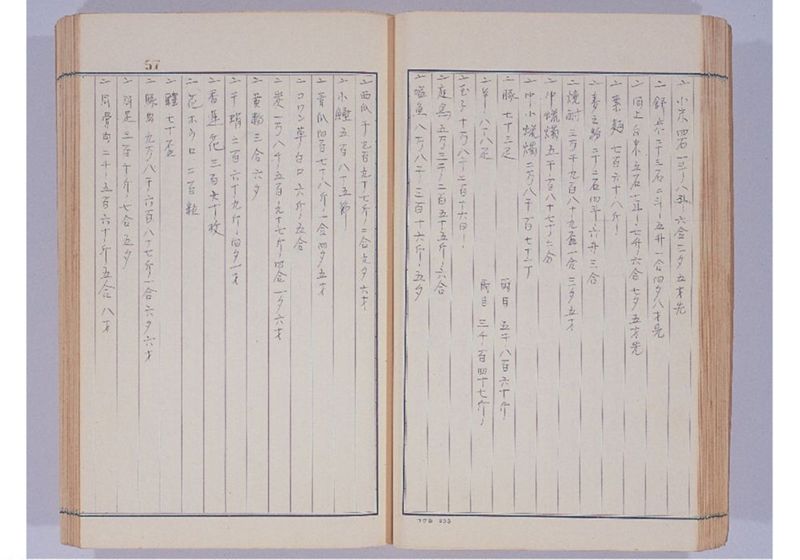 一 小米 四石一斗八升六合二夕五才先
一 二十三石二斗五升一合四夕八才先
一 同上白米 五石一斗七升六合七夕五才先
一 素麺 七百六十八斤
一 麦之粉 二十二石四斗六升三合
一 焼酎 三万千九百八十九盃一合三夕五才
一 中蝋燭 五千百八十七丁二合
一 中小蝋燭 二万八千百七十一丁
一 豚 七十三疋 両目 五千八百六十斤
一 羊 八十八疋 両目 三千百四十七斤
一 玉子 十万八千二百十六
一 庭鳥 五万三千二百五十五斤六合
一 塩魚 八万八千三百十六斤五夕
57
一 西瓜 千七百九十七斤二合九夕六才
一 小鰹 五百八十五節
一 青瓜 四百七十八斤一合四夕五才
一 コワン草 六斤五合
一 炭 一万八千五百九十七斤四合一夕六才
一 黄粉 三合六夕
一 二百六十九斤四夕一才
一 香蓮花 三百六十枚
一 花ホウロ 二百粒
一 七十盃
一 豚肉 九万八千六百八十七斤一合六夕六才
一 同足 三百十斤七合五夕
一 同骨肉 二千五百六十斤五合八才